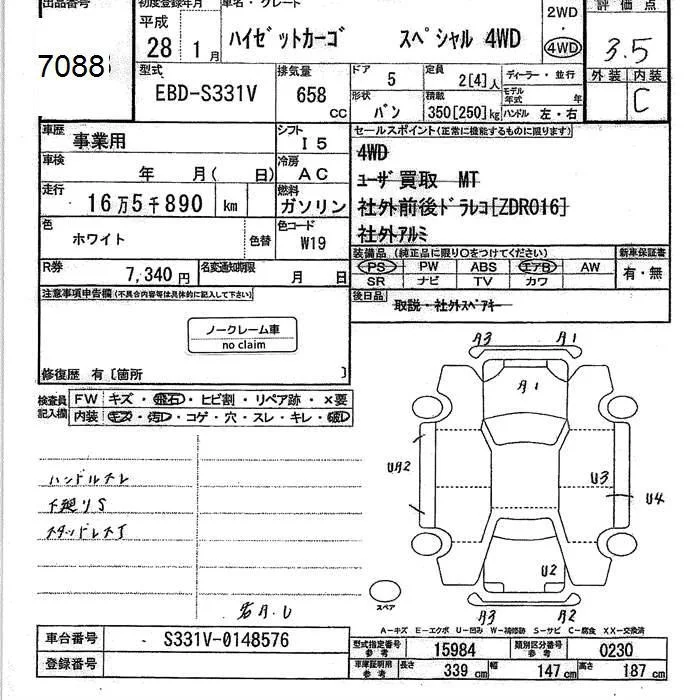 出品番号 初度登録年月 車名・グレード 2WD 評価点
平成 28年 1月 ハイゼットカーゴ スペシャル 4WD 4WD 3.5
7088
型式 排気量 ドア 5 定員 2[4]人 ディーラー・並行 外装 内装
EBD-S331V 658 CC 形状 バン 積載 350[250]kg モデル年式 年 ハンドル 左・右 C
車歴 事業用 シフト I5 セールスポイント(正常に機能するものに限ります)
車検 年 月( 日) 冷房 AC 4WD
走行 16万5千890 km 燃料 ガソリン ユーザ買取 MT
社外前後ドラレコ[ZDR016]
色 ホワイト 色替 色コード W19 社外アルミ
装備品(純正品に限り○をつけてください) 新車保証書
R券 7,340円 名変通知期限 月 日 PS PW ABS エアB AW 有・無
SR ナビ TV カワ
注意事項申告欄(不具合内容等は具体的に記入して下さい) 後日品 取説・社外スペアキー
ノークレーム車
no claim
修復歴 有〔箇所 〕
検査員記入欄 FW キズ・飛石・ヒビ割・リペア跡・×要
内装 キズ・汚レ・コゲ・穴・スレ・キレ・破レ
A3 A1
A1
UA2
U3
U4
U2
A3 A2
ハンドルスレ
下廻りS
スタッドレスT
スペア
A－キズ E－エクボ U－凹み W－補修跡 S－サビ C－腐食 XX－交換済
車台番号 S331V-0148576 型式指定番号 参考 15984 類別区分番号 参考 0230
登録番号 車庫証明用 参考 長さ 339 cm 幅 147 cm 高さ 187 cm